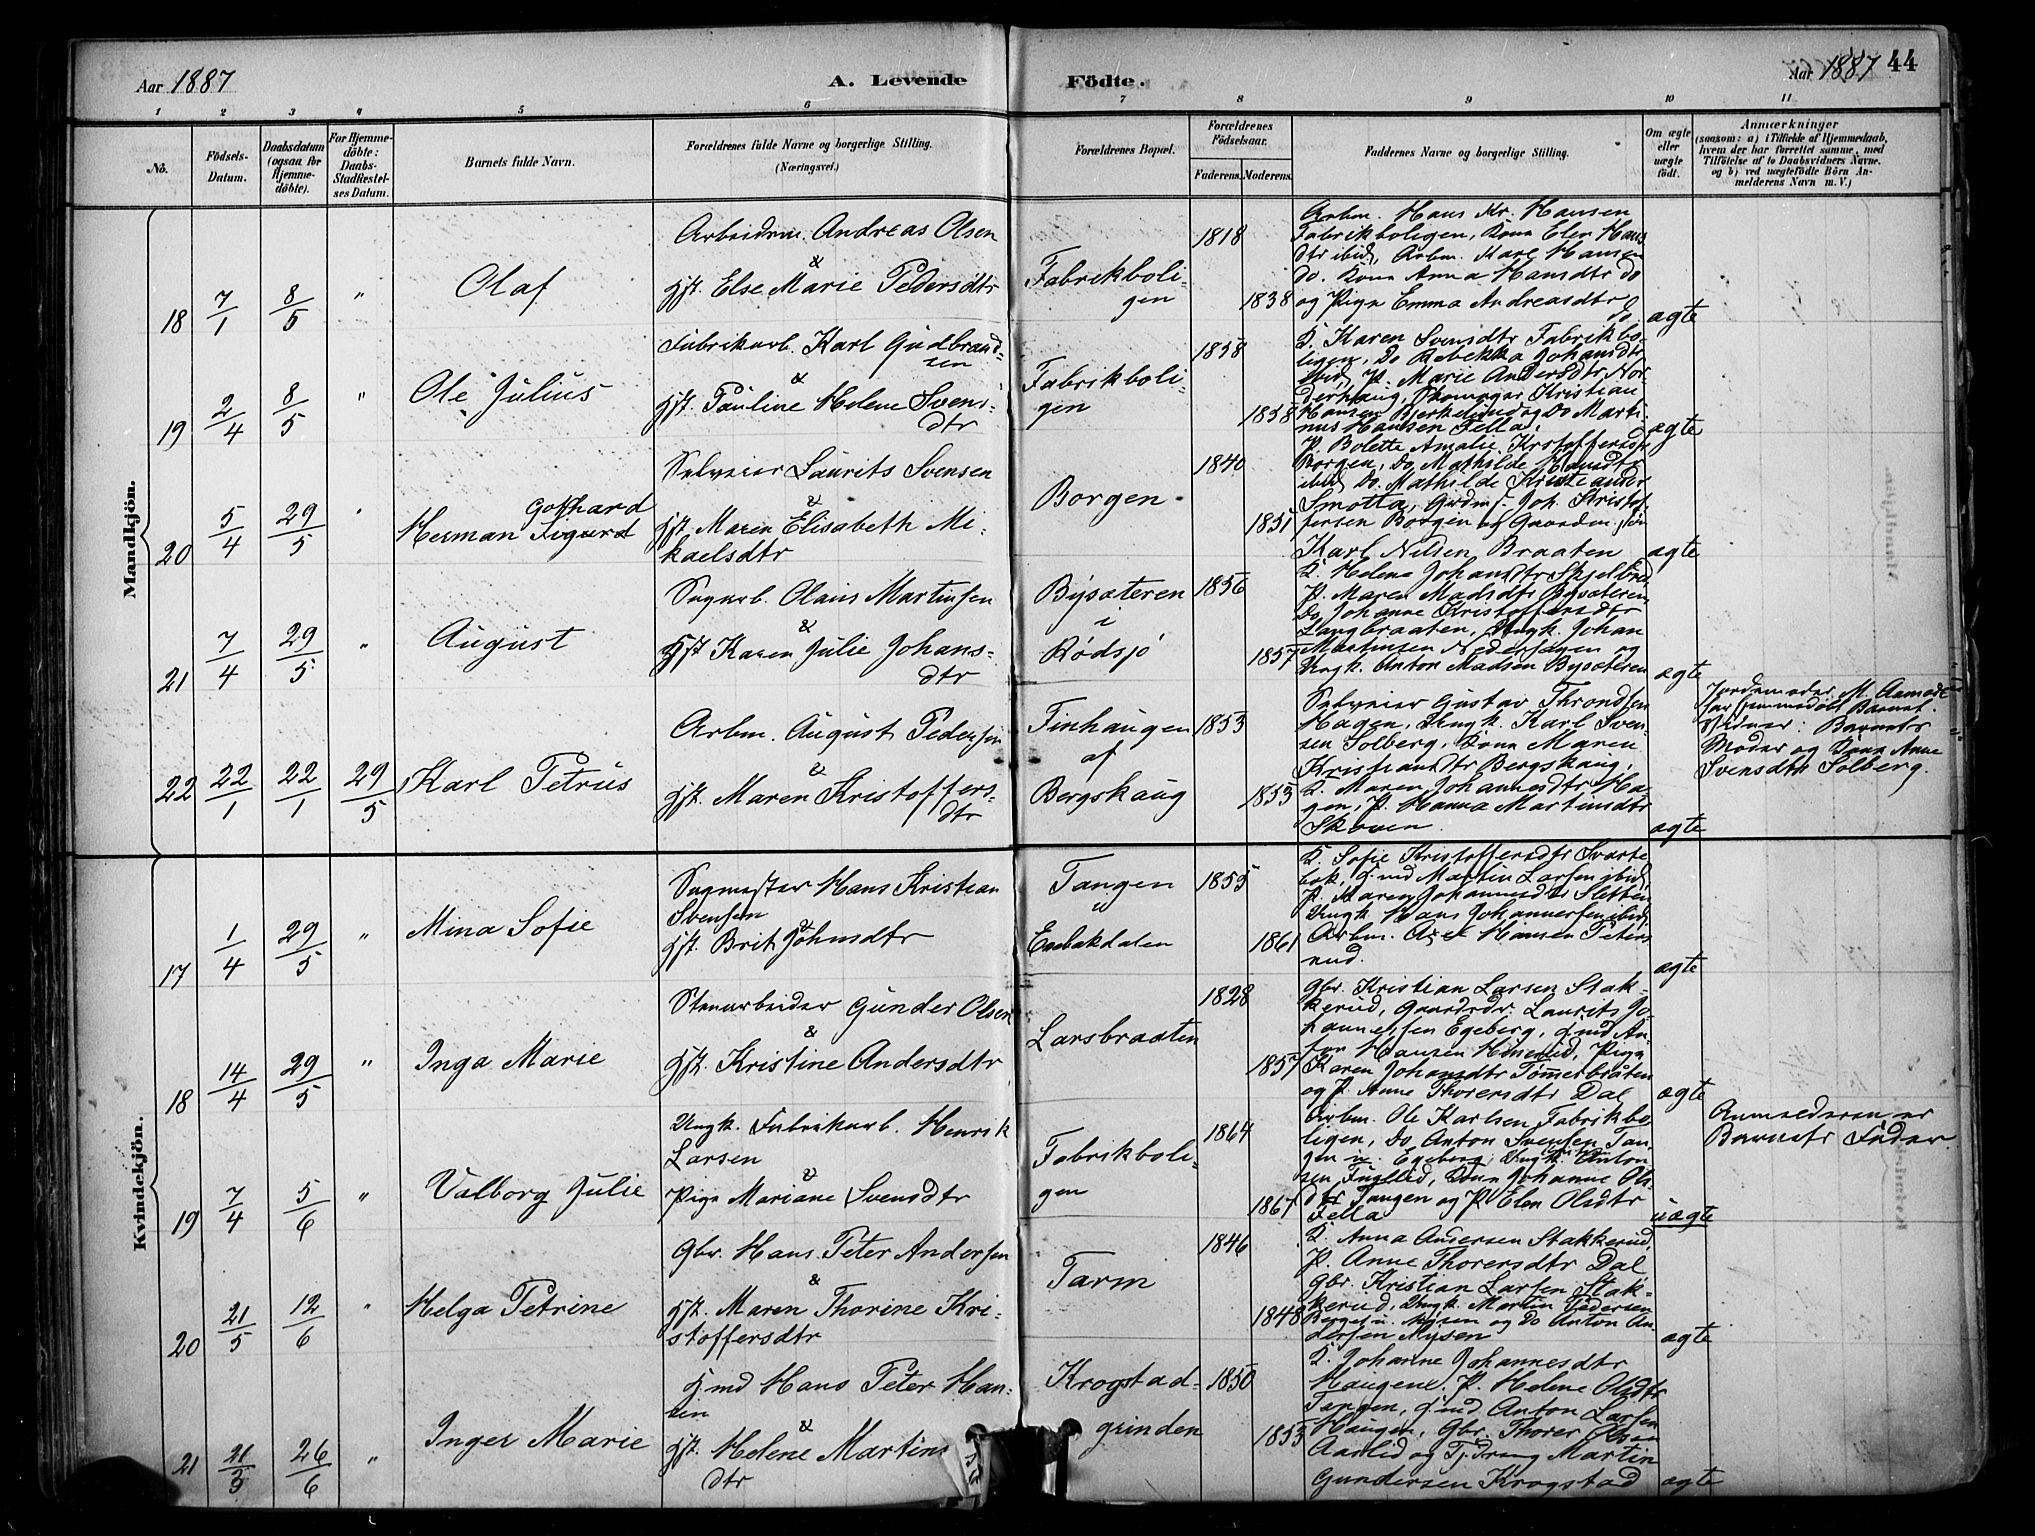 Aar 1887
A. Levende Födte.
Aar 1887
44
1 2 3 4 5 6 7 8 9 10 11
No.
Födsels-Datum.
Daabsdatum (ogsaa for Hjemmedöbte).
For Hjemmedöbte: Daabs-Stadfæstelses Datum.
Barnets fulde Navn.
Forældrenes fulde Navne og borgerlige Stilling.
(Næringsvei.)
Forældrenes Bopæl.
Forældrenes Födselsaar.
Faderens. Moderens.
Faddernes Navne og borgerlige Stilling.
Om ægte eller uægte födt.
Anmærkninger
(saasom: a) i Tilfælde af Hjemmedaab,
hvem der har forrettet samme, med
Tilföielse af to Daabsvidners Navne.
og b) ved uægtefödte Börn An-
melderens Navn m. V.)
Mandkjön.
18 7/1 8/5 " Olaf
Arbeidsm. Andreas Olsen
&
Gft. Else Marie Pedersdtr
Fabrikboli-
gen
1818
1838
Arbm. Hans Kr. Hansen
Fabrikboligen, Kona Elen Hans
dtr ibid, Arbm. Karl Hansen
do. Kona Anna Hansdtr do
og Pige Emma Andreasdtr
do.
ægte
19 2/4 8/5 " Ole Julius
Fabrikarb. Karl Gudbrand-
sen
&
Gft. Pauline Helene Svens-
dtr
Fabrikboli-
gen
1858
1858
K. Karen Svensdtr Fabrikbo-
ligen, Do Rebekka Johansdtr
ibid, P. Marie Andersdtr Hor-
derhaug, Skomager Kristian
Hansen Bjerkelund og Do Marti-
nus Hansen Fella.
ægte
20 5/4 29/5 " Herman Gothard Sigurd
Selveier Laurits Svensen
&
Gft. Maren Elisabeth Mi-
kaelsdtr
Borgen
1840
1851
P. Bolette Amalie Kristoffersdtr
Borgen, Do Mathilde Hansdtr
ibid, Do. Mathilde
Smotta, Joh. Kristof-
fersen Borgen og
Karl Nilsen Braaten
ægte
21 7/4 29/5 " August
Sagarb. Olaus Martinsen
&
Gft Karen Julie Johans-
dtr
Bysæteren
i
Rödsjö
1856
1857
K. Helene Johansdtr
P. Maren Madsdtr Bysæteren,
Do Johanne Kristoffersdtr
Langbraaten, Ungk. Johan
Martinsen og
Ungk. Anton Madsen Bysæteren
ægte
22 22/1 22/1 29/5 Karl Petrus
Arbm. August Pedersen
&
Gft. Maren Kristoffers-
dtr
Finhaugen
af
Bergskaug
1853
1853
Selveier Gustav Throndsen
Hagen, Ungk. Karl Sven-
sen Solberg, Kona Maren
Kristiansdtr Bergskaug,
K. Maren Johannesdtr Ha-
gen, P. Hanna Martinsdtr
Skoven.
ægte
Jordemoder M. Aamodt
har hjemmedöbt Barnet.
Vidner: Barnets
Moder og Kona Anne
Svensdtr Solberg.
Kvindekjön.
17 1/4 29/5 " Mina Sofie
Sagmester Hans Kristian
Svensen
&
Gft. Brit Johnsdtr
Tangen
u
Enebakdalen
1855
1861
K. Sofie Kristoffersdtr Svarte-
bæk, Gmd Martin Larsen ibid,
P. Maren Johannesdtr Sletten,
Ungk. Hans Johannesen ibid,
Arbm. Axel Hansen Peters
rud.
ægte
18 14/4 29/5 " Inga Marie
Stenarbeider Gunder Olsen
&
Gft. Kristine Andersdtr
Larsbraaten
1828
1857
Gbr. Kristian Larsen Stak-
kerud, Gaardbr. Laurits Jo-
hannessen Egeberg, Gmd An-
ton Hansen, Pige
Karen Johansdtr Tömmerbråten
og P. Anne Thorersdtr Dal
ægte
19 7/4 5/6 " Valborg Julie
Ungk. Fabrikarb. Henrik
Larsen
&
Pige Mariane Svensdtr
Fabrikboli-
gen
1864
1867
Arbm. Ole Karlsen Fabrikbo-
ligen, Do Anton Svensen Tan-
gen u. Egeberg, Ungk. Anton
sen Fuglelid, Kona Johanne Ols-
dtr Tangen og P. Elen Olsdtr
Fella
uægte
Anmelderen er
Barnets Fader
20 21/5 12/6 " Helga Petrine
Gbr. Hans Peter Andersen
&
Gft. Maren Thorine Kri-
stoffersdtr
Tarm
1846
1848
K. Anna Andersen Stakkerud,
P. Anne Thorersdtr Dal
Gbr. Kristian Larsen Stak-
kerud, Ungk. Martin Pedersen
Berget u. Mysen og Do Anton An
dersen Mysen
ægte
21 21/3 26/6 " Inger Marie
Gmd Hans Peter Han-
sen
&
Gft. Helene Martins
dtr
Krogstad-
grinden
1850
1853
K. Johanne Johannesdtr
Haugene, P. Helene Olsdtr
Tangen, Gmd. Anton Larsen
Haugen, Gbr. Thorer Olsen
Aarlid og Tj.dreng Martin
Gundersen Krogstad
ægte